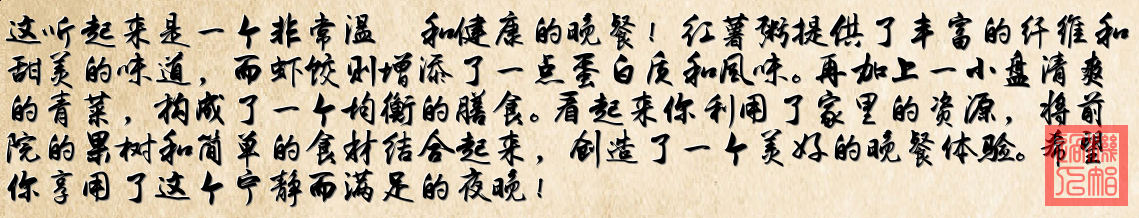 这听起来是一个非常温 和健康的晚餐！红薯粥提供了丰富的纤维和
甜美的味道，而虾饺则增添了一点蛋白质和风味。再加上一小盘清爽
的青菜，构成了一个均衡的膳食。看起来你利用了家里的资源，将前
院的果树和简单的食材结合起来，创造了一个美好的晚餐体验。希望
你享用了这个宁静而满足的夜晚！